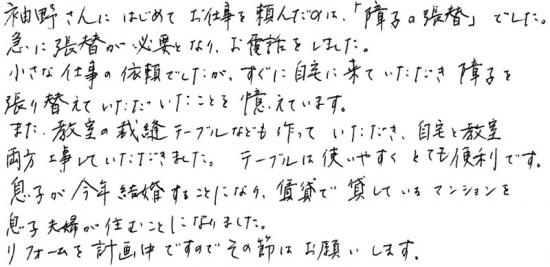 袖野さんに はじめて お仕事を頼んだのは、「障子の張替」でした。
急に張替が必要となり、お電話をしました。
小さな仕事の依頼でしたが、すぐに自宅に来ていただき 障子を
張り替えていただいたことを憶えています。
また、教室の裁縫テーブルなども作って いただき、自宅と教室
両方工事していただきました。 テーブルは使いやすく とても便利です。
息子が今年結婚することになり、賃貸で貸しているマンションを
息子夫婦が住むことになりました。
リフォームを計画中ですのでその節はお願いします。